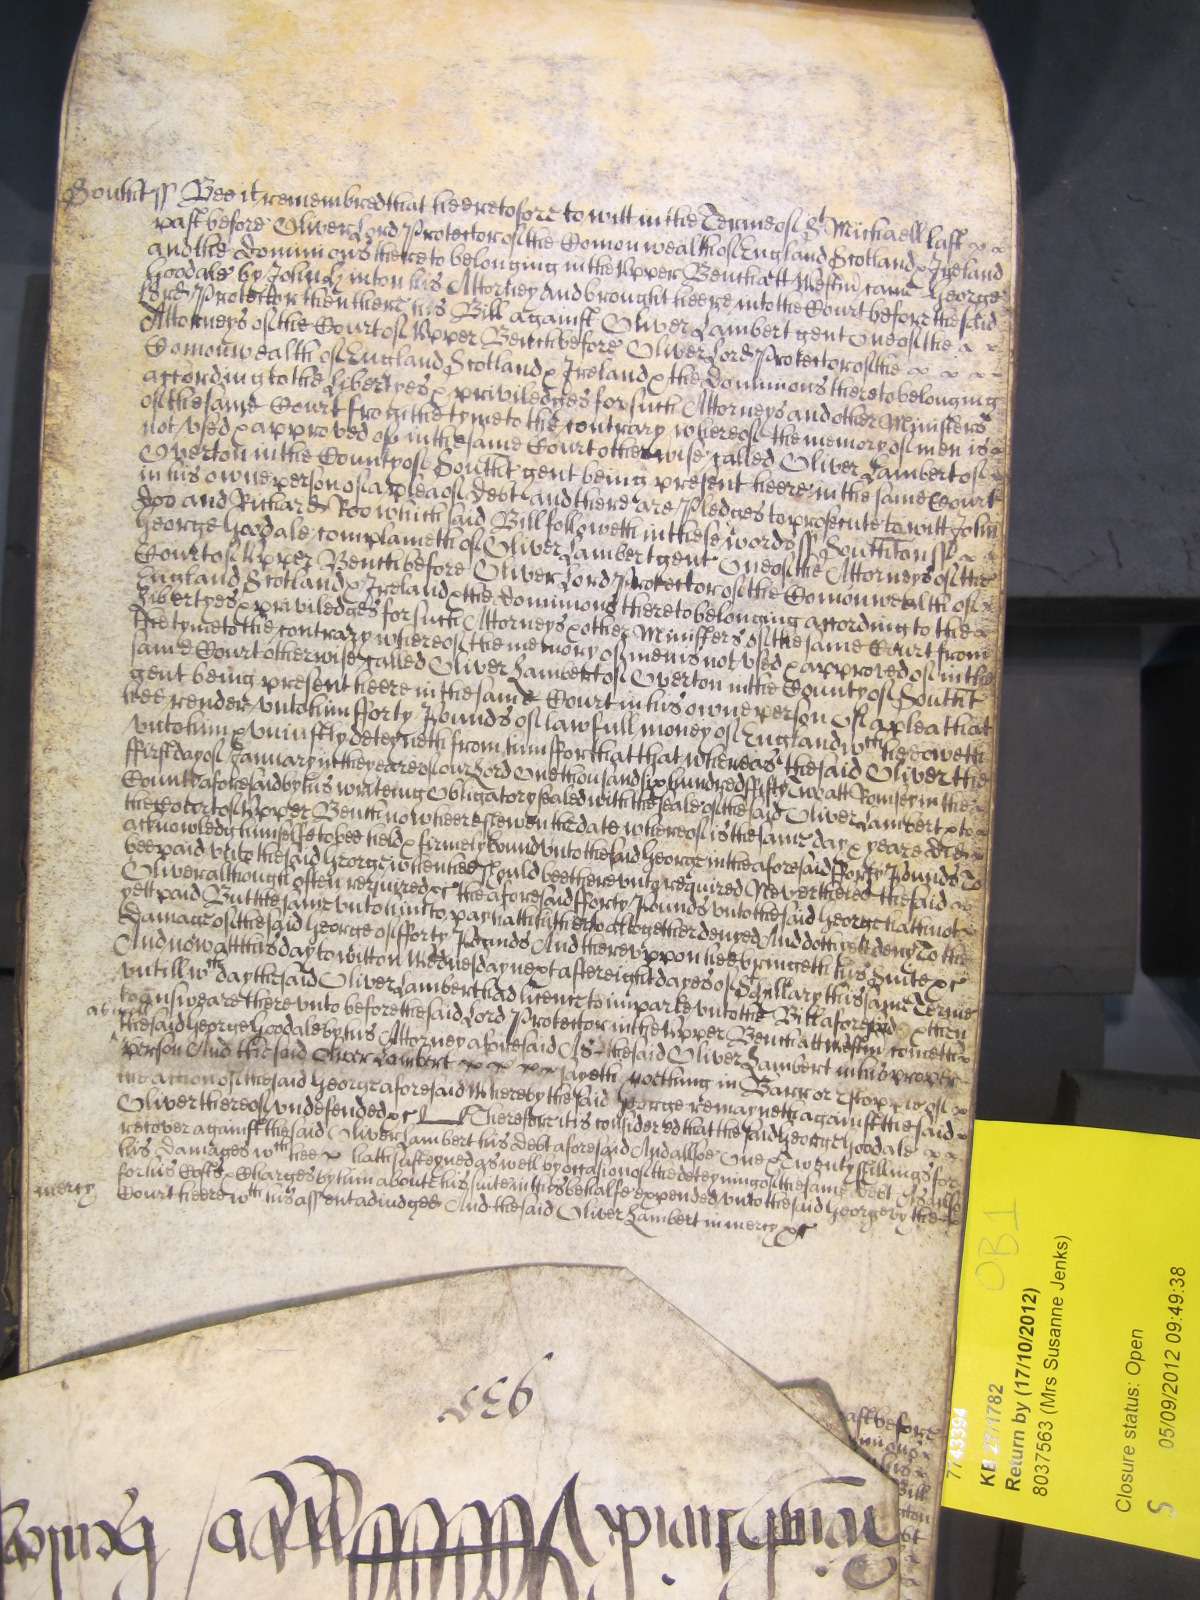 South't ss Bee it remembred that heeretofore to witt in the Terme of St Michaell last
past before Oliver Lord Protector of the Comonwealth of England Scotland & Ireland
and the Dominions thereto belonging in the Upper Bench att Westm' came George
Goodale by John his Attorney and brought heere into the Court before the said
Lord Protector then there his Bill against Oliver Lambert gent One of the
Attorneys of the Court of Upper Bench before Oliver Lord Protector of the
Comonwealth of England Scotland & Ireland & the Dominions thereto belonging
according to the Libertyes & priviledges for such Attorneys and other Ministers
of the same Court from the tyme to the contrary whereof the memory of men is
not used & approved of in the same Court otherwise called Oliver Lambert of
Overton in the County of South't gent being present heere in the same Court
in his owne person of a plea of Debt and there are Pledges to prosecute to witt John
Doo and Richard Roo which said Bill followeth in these words ss South'ton ss
George Goodale complaineth of Oliver Lambert gent One of the Attorneys of the
Court of Upper Bench before Oliver Lord Protector of the Comonwealth of
England Scotland & Ireland & the Dominions thereto belonging according to the
Libertyes & priviledges for such Attorneys & other Ministers of the same Court from
the tyme to the contrary whereof the memory of men is not used & approved of in the
same Court otherwise called Oliver Lambert of Overton in the County of South't
gent being present heere in the same Court in his owne person Of a plea that
hee render unto him fforty Pounds of lawfull money of England wch hee oweth
unto him & uniustly deteyneth from him ffor that that whereas the said Oliver the
ffirst day of January in the yeare of our Lord One thousand six hundred ffifty Two att Romsey in the
County aforesaid by his writeing Obligatory sealed with the seale of the said Oliver Lambert & to
the Court of Upper Bench now heere shewen the date whereof is the same day & yeare did
acknowledg himselfe to bee held & firmely bound unto the said George in the aforesaid fforty Pounds To
bee paid unto the said George when hee should bee thereunto required Neverthelesse the said
Oliver although often required &c the aforesaid fforty Pounds unto the said George hath not
yett paid But the same unto him to pay hath hitherto altogether denyed And doth yett deny To the
Damage of the said George of fforty Pounds And thereuppon hee bringeth his Suite &c
And now att this day to witt on Wednesday next after eight dayes of St Hillary this same Terme
untill wch day the said Oliver Lambert had licence to imparle unto the Bill aforesaid & then
to answeare there unto before the said Lord Protector in the Upper Bench att Westm' cometh
the said George Goodale by his Attorney aforesaid As the said Oliver Lambert in his proper
person And the said Oliver Lambert sayeth nothing in Barr or Stopple of
the action of the said George aforesaid Whereby the said George remayneth against the said
Oliver thereof undefended &c Therefore it is considered that the said George Goodale
recover against the said Oliver Lambert his debt aforesaid And allsoe One & Twenty shillings for
his Damages wch hee hath susteyned as well by occasion of the deteyning of the same Debt As allso
for his Costs & Charges by him about his suite in this behalfe expended unto the said George by the
mercy Court heere wth his assent adiudged And the said Oliver Lambert in mercy &c
past before
Bill
7743394
KB 27/1782
Return by (17/10/2012)
8037563 (Mrs Susanne Jenks)
OB1
Closure status: Open
05/09/2012 09:49:38
S